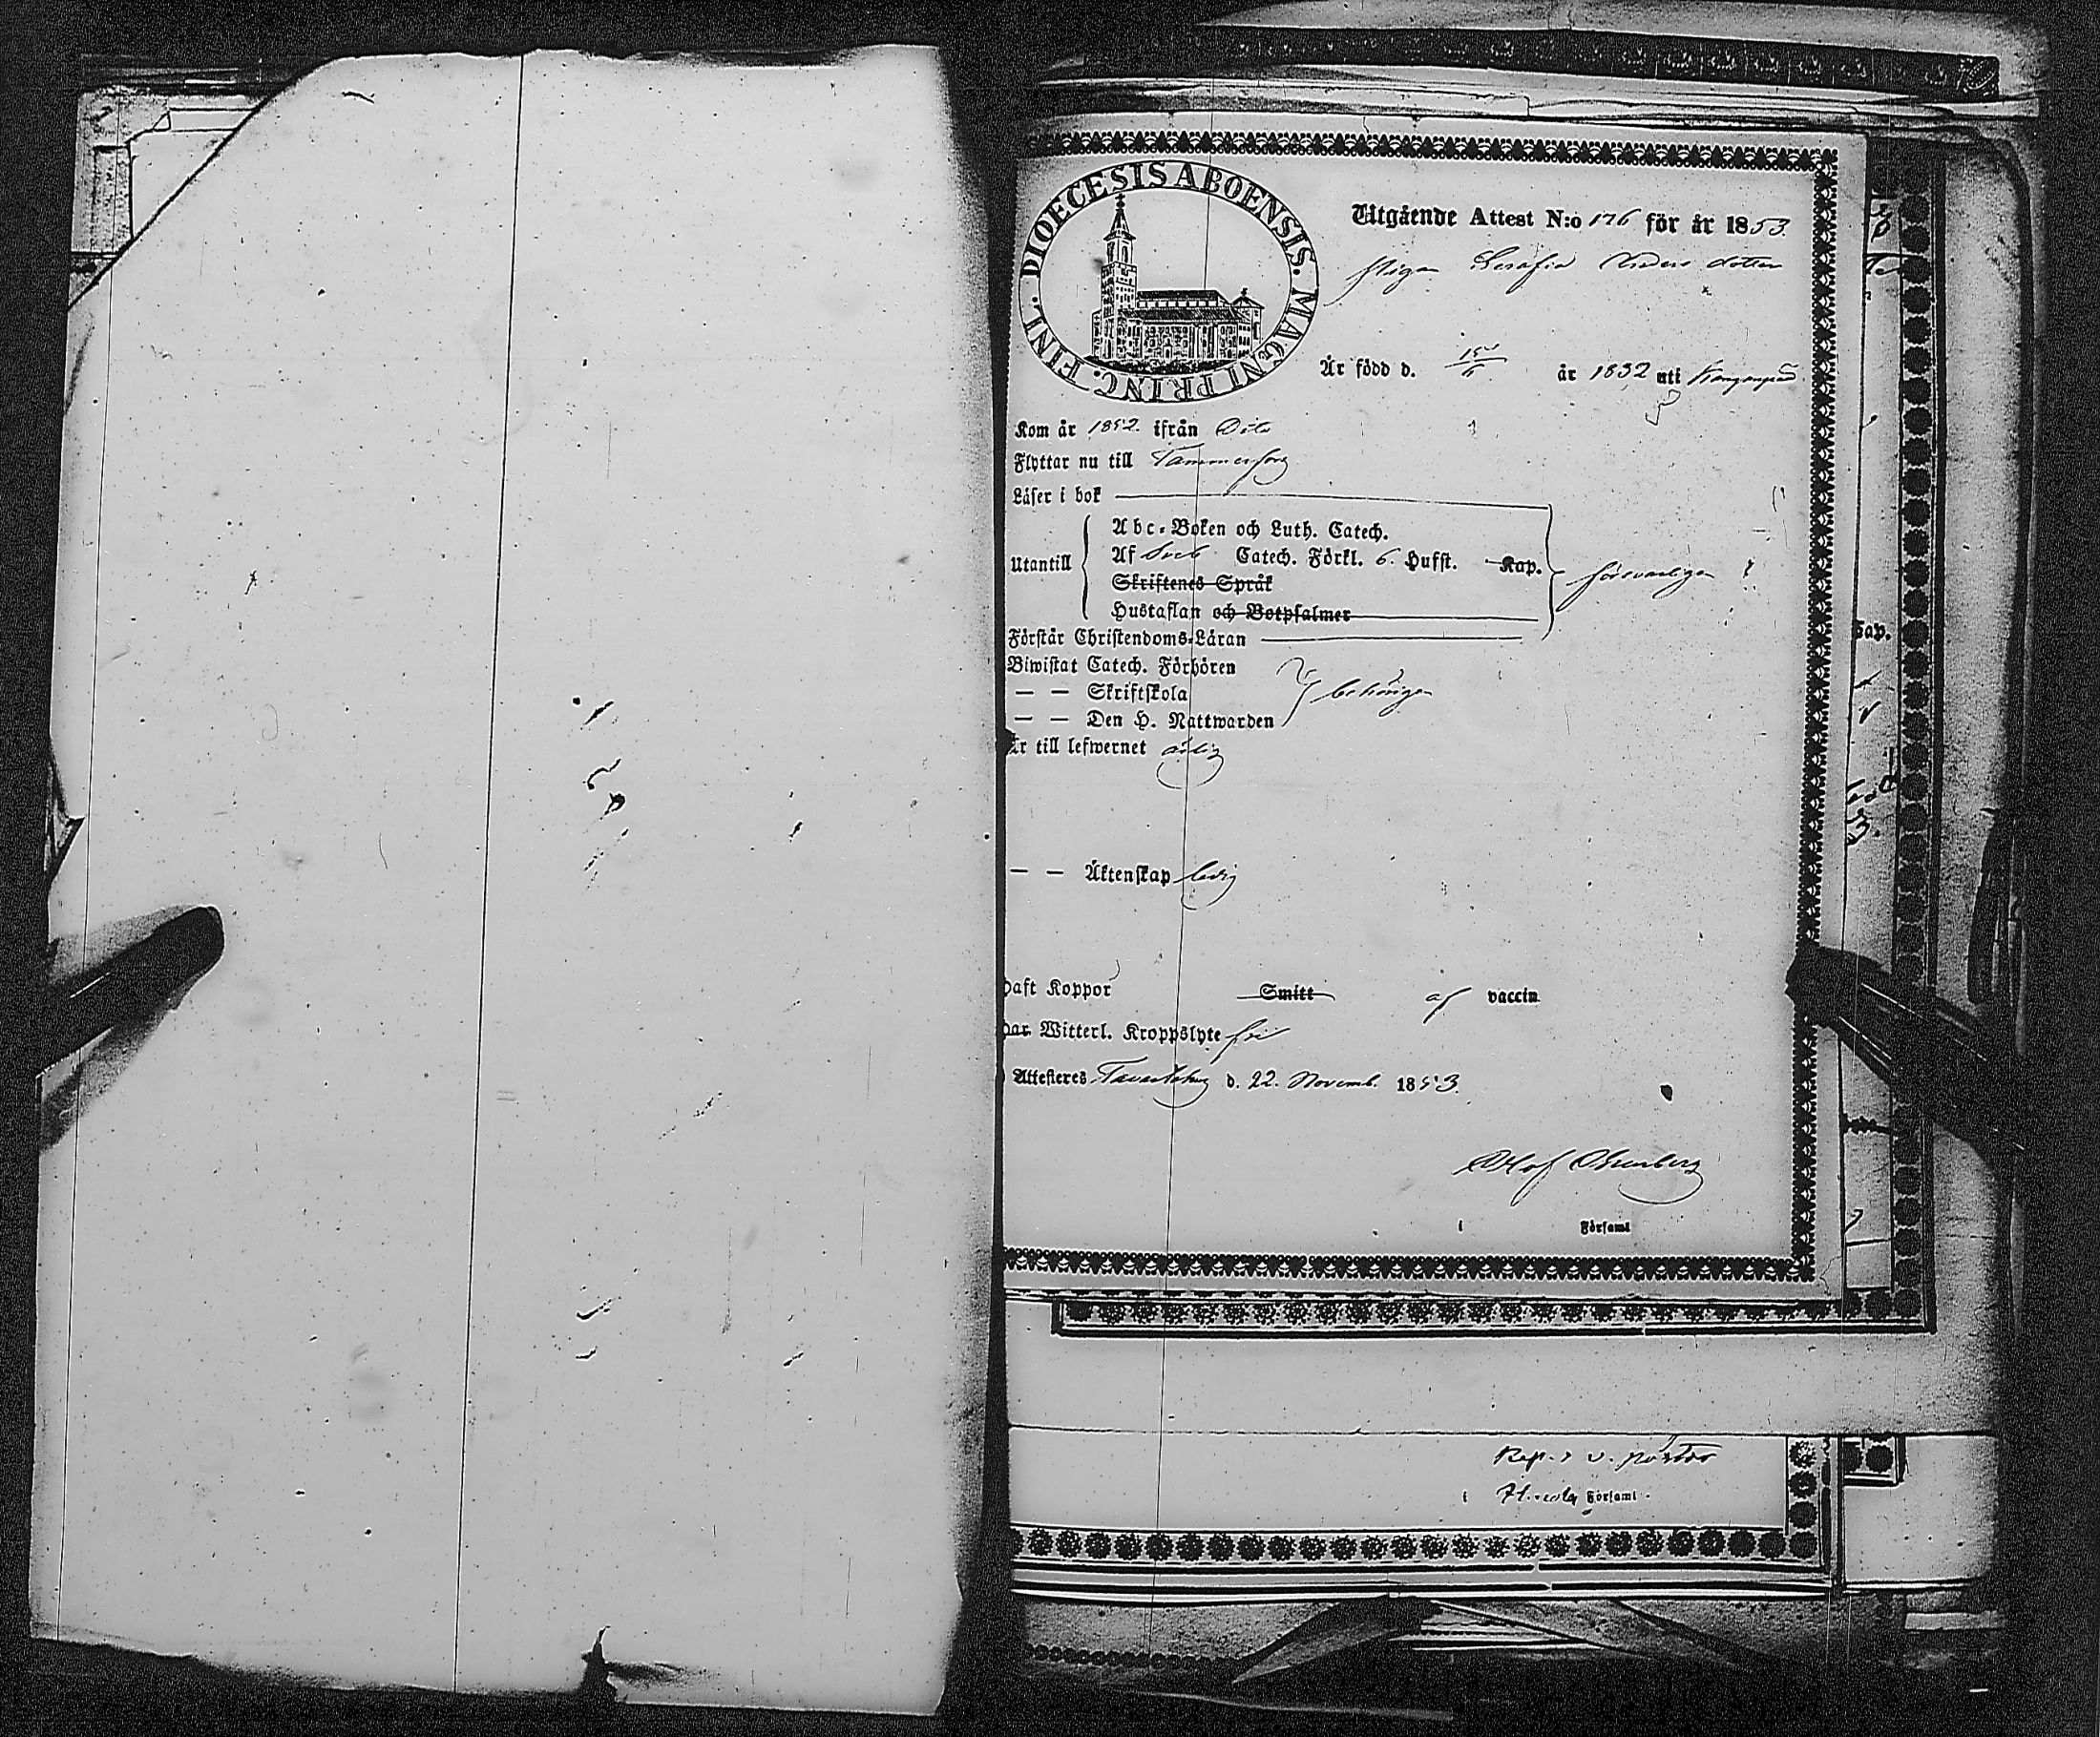 DIOECESIS ABOENSIS. MAGNI PRINC. FINL.
Utgående Attest N:o 176 för år 1853.
Pigan Serafia Anders dotter
Är född d. år 1832 uti Kangasala
Kom år 1852. ifrån Dito
Flyttar nu till Tammerfors
Läser i bok
Utantill
Abc-Boken och Luth. Catech.
Af Sveb. Catech. Förkl. 6. Hufst. Kap.
försvarligen
Skriftenes Språk
Hustaflan och Botpsalmer
Förstår Christendoms-Läran
Biwistat Catech. Förhören
— — Skriftskola
behörigen
— — Den H. Nattwarden
Är till lefwernet ärlig
— — Äktenskap ledig
Haft Koppor Smitt af vaccin
Har Witterl. Kroppslyte fri
Attesteres Tavastehus d. 22. Novemb. 1853.
Olof
i Församl
Kap.
v. pastor
i Församl.